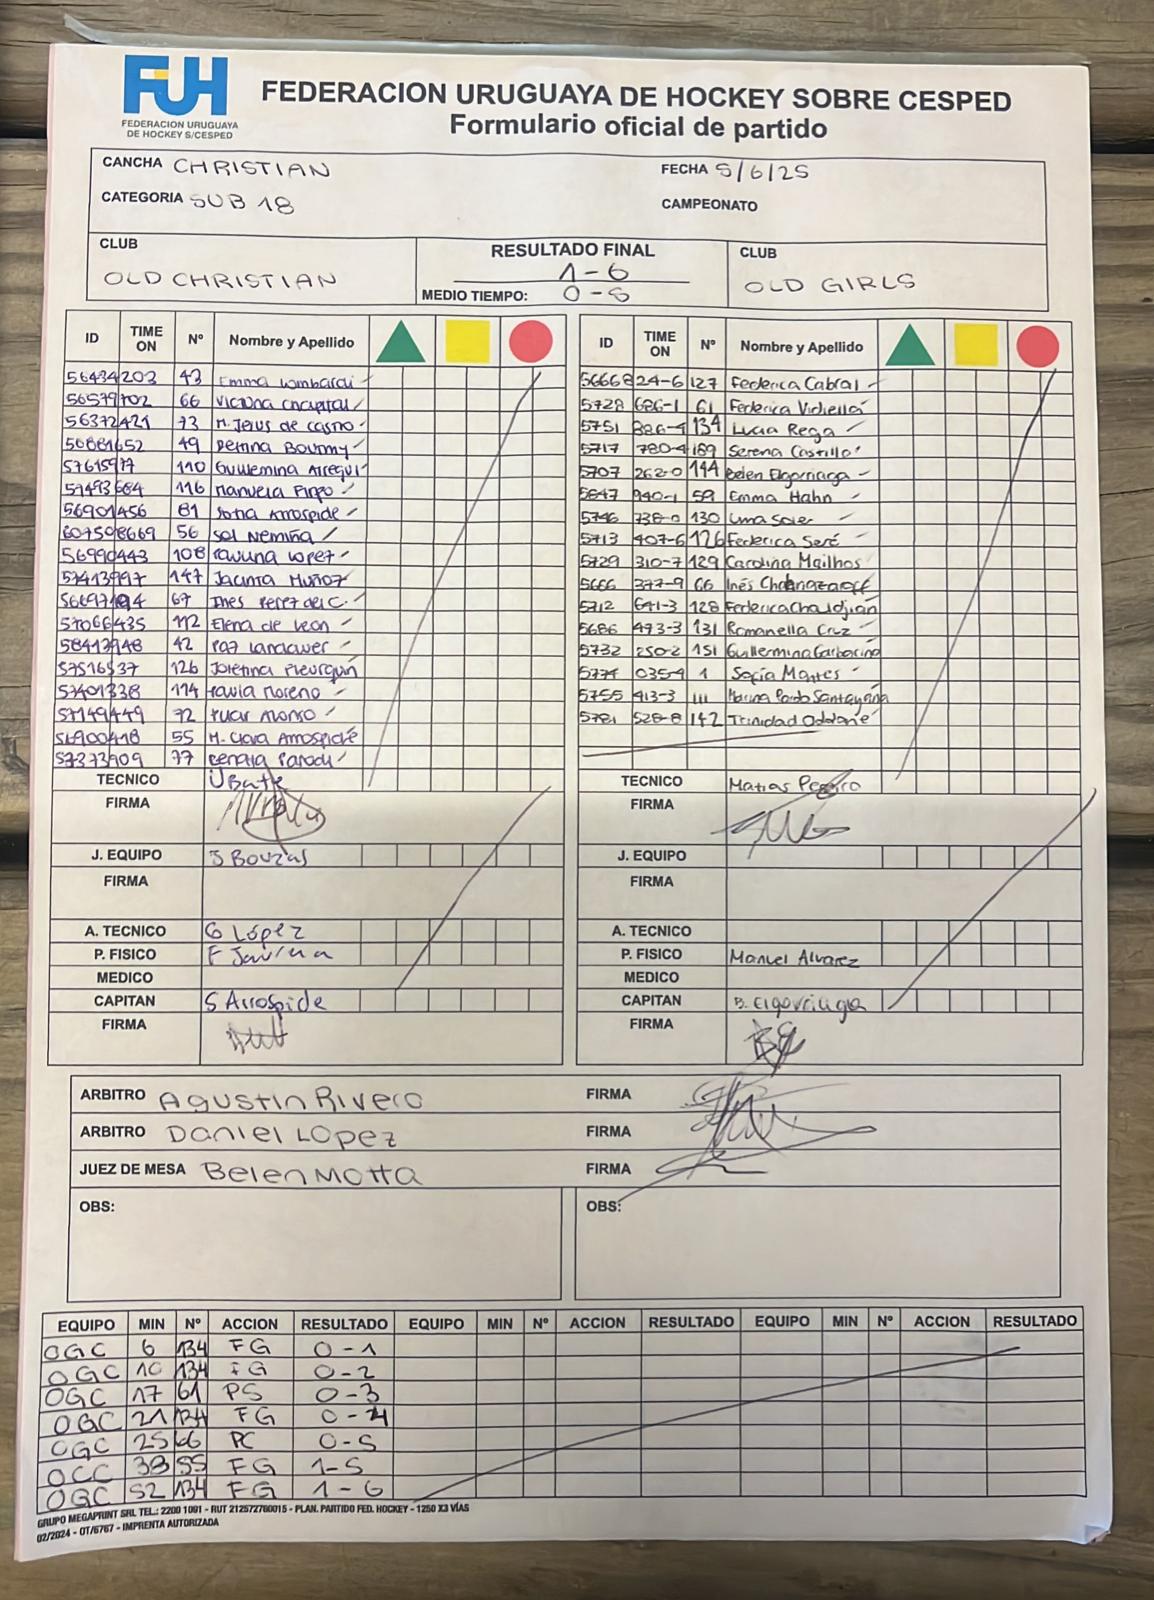 FUH
FEDERACION URUGUAYA
DE HOCKEY S/CESPED
FEDERACION URUGUAYA DE HOCKEY SOBRE CESPED
Formulario oficial de partido
CANCHA CHRISTIAN FECHA 5/6/25
CATEGORIA SUB 18 CAMPEONATO
CLUB RESULTADO FINAL CLUB
OLD CHRISTIAN 1-6 OLD GIRLS
MEDIO TIEMPO: 0-5
ID TIME ON Nº Nombre y Apellido
56434203 43 Emma Lombardi
66 Victoria
56372421 73 M. Jesus de Castro
50881652 49 Delfina Bourmy
110 Guillemina Arregui
116 Manuela Firpo
56901456 81 Sofia Arrospide
607598669 56 Sol Nemiña
56990443 108 Paulina Lopez
147 Jacinta Muñoz
67 Ines Perez del C.
57066435 112 Elena de Leon
58413948 42 Paz Landauer
57516537 126 Josefina Pleurquin
57401338 114 Paula Moreno
57149449 72 Pilar Alonso
56900418 55 M. Clara Arrospide
57373909 77 Renata Parodi
TECNICO U Bate
FIRMA
J. EQUIPO J Bouzas
FIRMA
A. TECNICO G López
P. FISICO F
MEDICO
CAPITAN S Arrospide
FIRMA
ID TIME ON Nº Nombre y Apellido
56668 24-6 127 Federica Cabral
5728 686-1 61 Federica Vichella
5751 886-4 134 Lucia Rega
5717 780-4 189 Serena Castillo
5707 262-0 144 Belen Elgorriaga
5647 940-1 59 Emma Hahn
5746 738-0 130 Uma Soler
5713 407-6 126 Federica Seré
5729 310-7 129 Carolina Mailhos
5666 377-9 66 Inés
5712 641-3 128 Federica Chaldjian
5686 493-3 131 Romanella Cruz
5732 250-2 151 Guillermina Garbarino
5774 035-9 1 Sofia Montes
5755 413-3 111 Marina Pardo Santayana
5781 528-8 142 Trinidad
TECNICO Matias
FIRMA
J. EQUIPO
FIRMA
A. TECNICO
P. FISICO Manuel Alvarez
MEDICO
CAPITAN B. Elgorriaga
FIRMA
ARBITRO Agustin Rivero FIRMA
ARBITRO Daniel Lopez FIRMA
JUEZ DE MESA Belen Motta FIRMA
OBS: OBS:
EQUIPO MIN Nº ACCION RESULTADO EQUIPO MIN Nº ACCION RESULTADO EQUIPO MIN Nº ACCION RESULTADO
OGC 6 134 FG 0-1
OGC 10 134 FG 0-2
OGC 17 61 PS 0-3
OGC 21 134 FG 0-4
OGC 25 66 PC 0-5
OCC 38 55 FG 1-5
OGC 52 134 FG 1-6
GRUPO MEGAPRINT SRL TEL.: 2200 1091 - RUT 212572760015 - PLAN. PARTIDO FED. HOCKEY - 1250 X3 VÍAS
02/2024 - OT/6767 - IMPRENTA AUTORIZADA